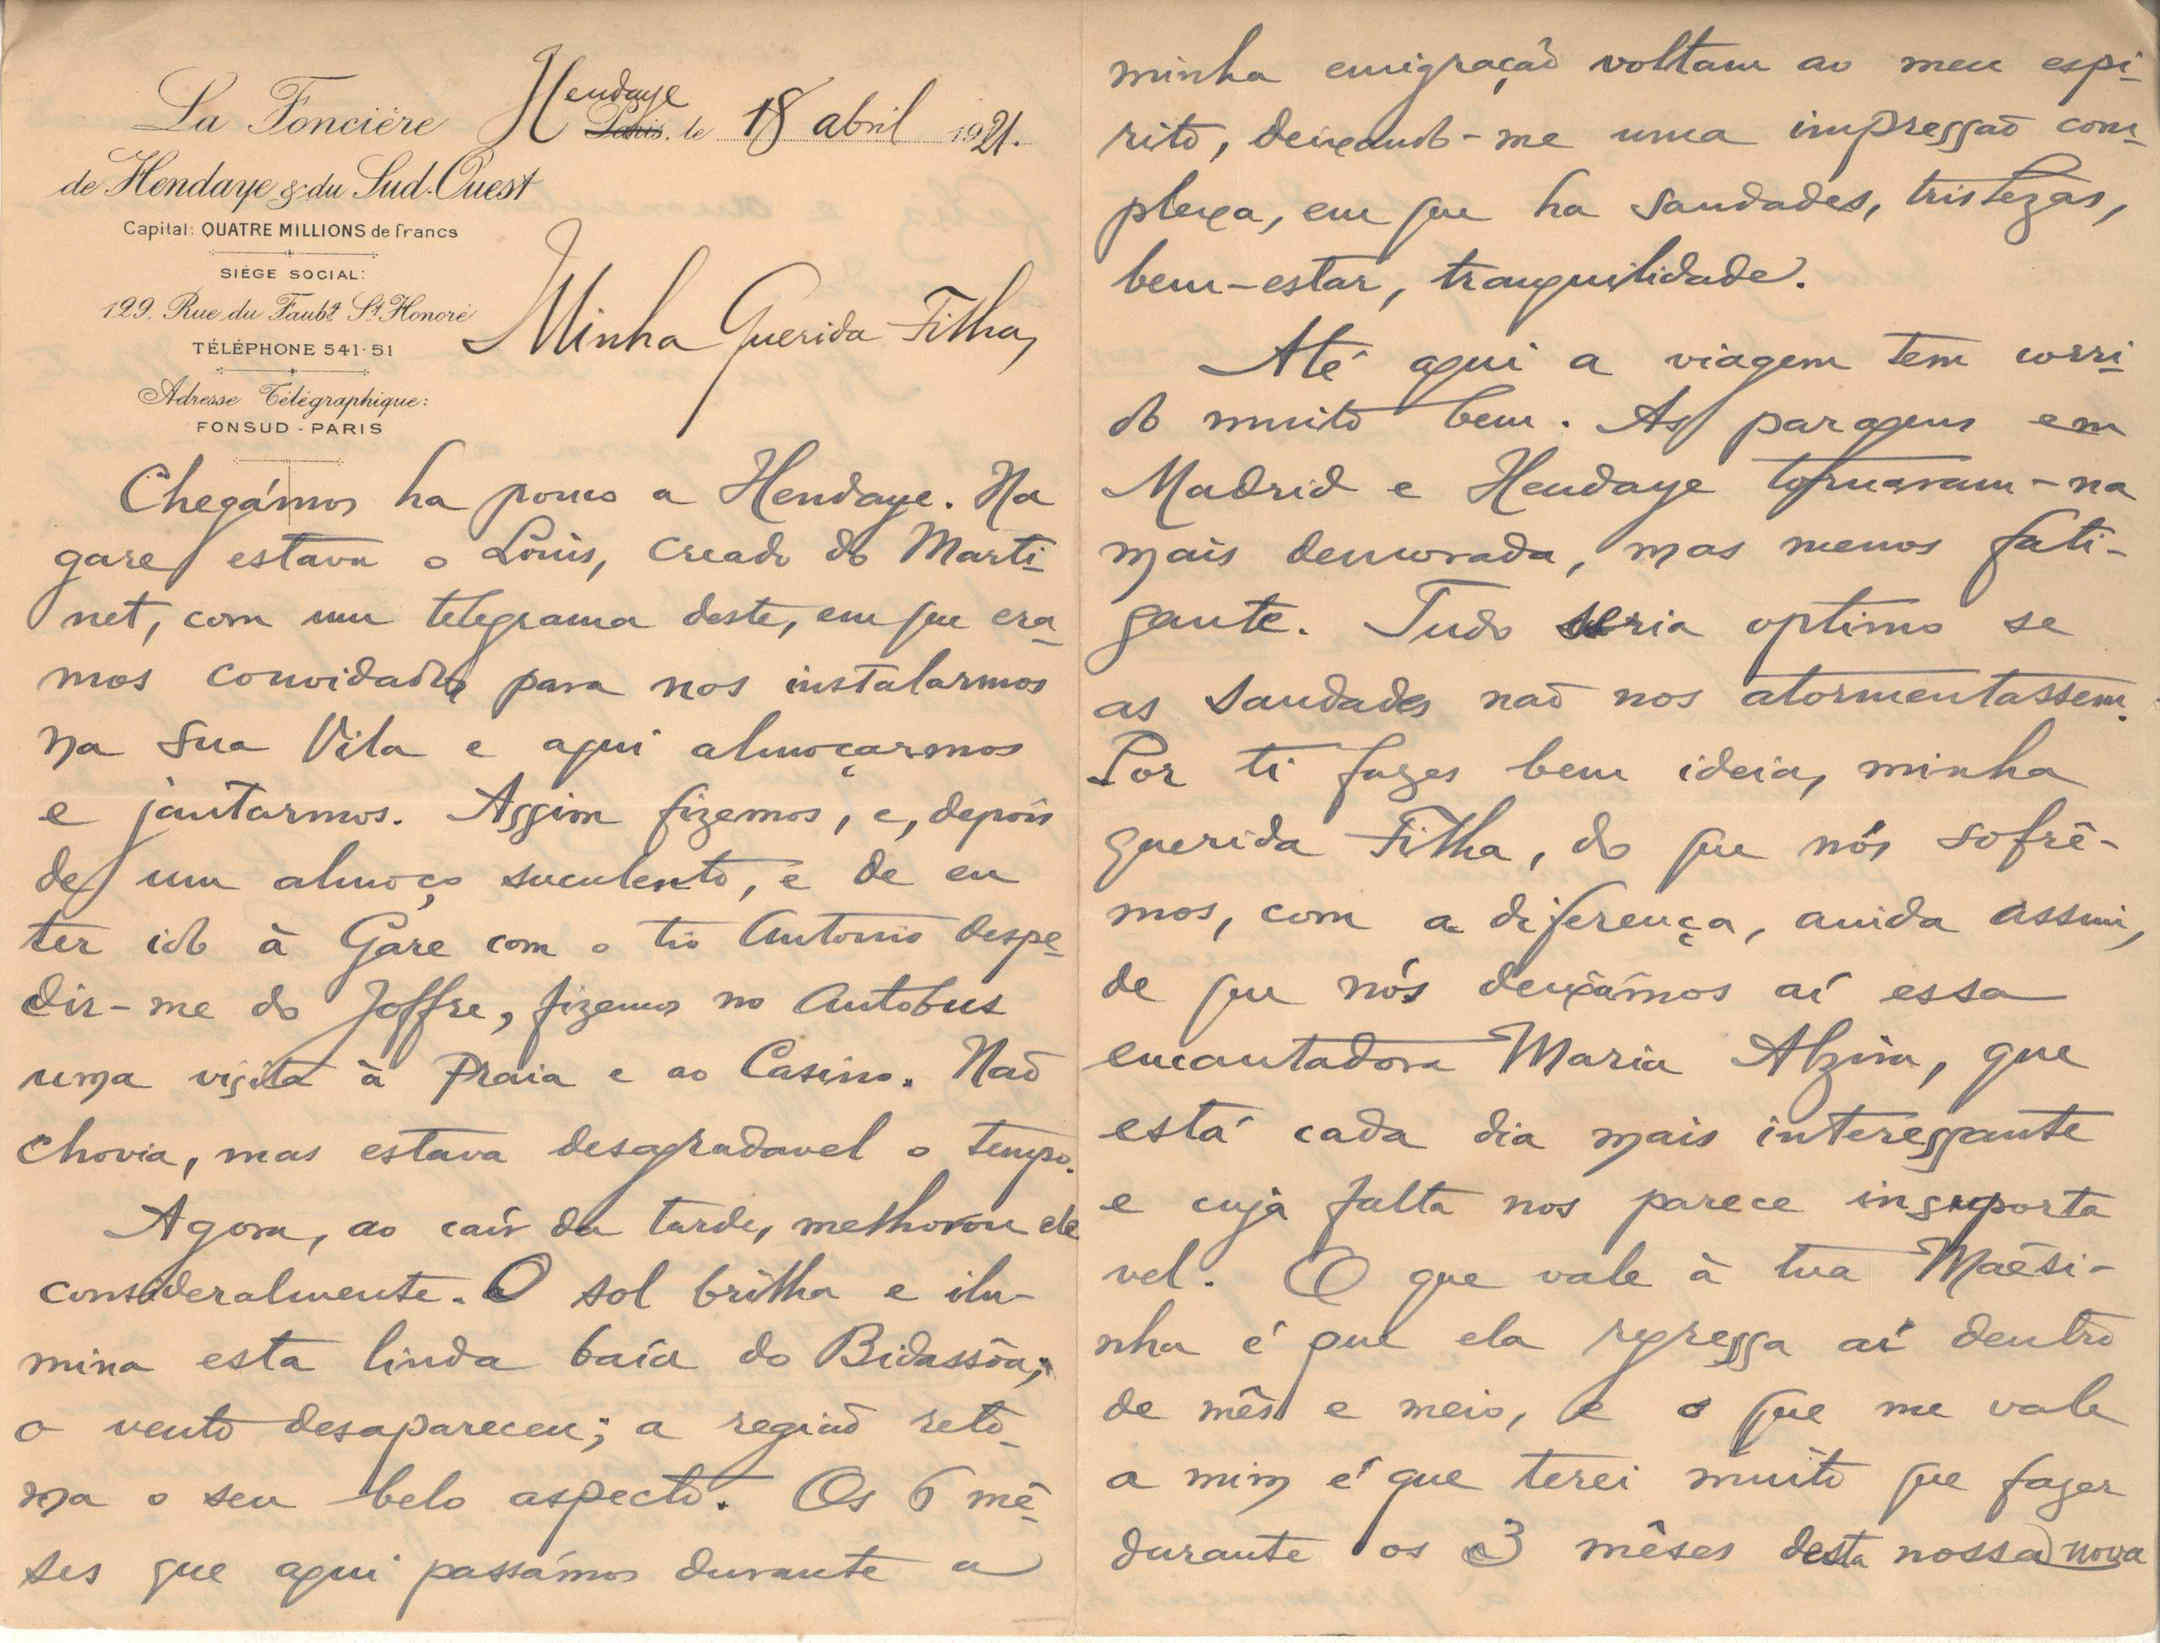 La Foncière
de Hendaye & du Sud-Ouest
Capital: QUATRE MILLIONS de francs
SIÈGE SOCIAL:
129. Rue du Faubg St Honoré
TÉLÉPHONE 541-51
Adresse Télégraphique:
FONSUD - PARIS
Hendaye
Paris. le 18 abril 1921.
Minha Querida Filha,
Chegámos ha pouco a Hendaye. Na
gare estava o Louis, creado do Marti-
net, com um telegrama deste, em que era-
mos convidados para nos instalarmos
na sua Vila e aqui almoçarmos
e jantarmos. Assim fizemos, e, depois
de um almoço suculento, e de eu
ter ido à Gare com o tio Antonio despe-
dir-me do Joffre, fizemos no Autobus
uma visita à Praia e ao Casino. Não
chovia, mas estava desagradavel o tempo.
Agora, ao caír da tarde, melhorou ele
consideralmente. O sol brilha e ilu-
mina esta linda baía do Bidassôa;
o vento desapareceu; a região reto-
ma o seu belo aspecto. Os 6 mê-
ses que aqui passámos durante a
minha emigração voltam ao meu espi-
rito, deixando-me uma impressão com-
plexa, em que ha saudades, tristezas,
bem-estar, tranquilidade.
Até aqui a viagem tem corri-
do muito bem. As paragens em
Madrid e Hendaye tornaram-na
mais demorada, mas menos fati-
gante. Tudo seria optimo se
as saudades não nos atormentassem.
Por ti fazes bem ideia, minha
querida Filha, do que nós sofrê-
mos, com a diferença, ainda assim,
de que nós deixámos aí essa
encantadora Maria Alzira, que
está cada dia mais interessante
e cuja falta nos parece insuporta
vel. O que vale à tua Mãesi-
nha é que ela regressa aí dentro
de mês e meio, e o que me vale
a mim é que terei muito que fazer
durante os 3 mêses desta nossa nova